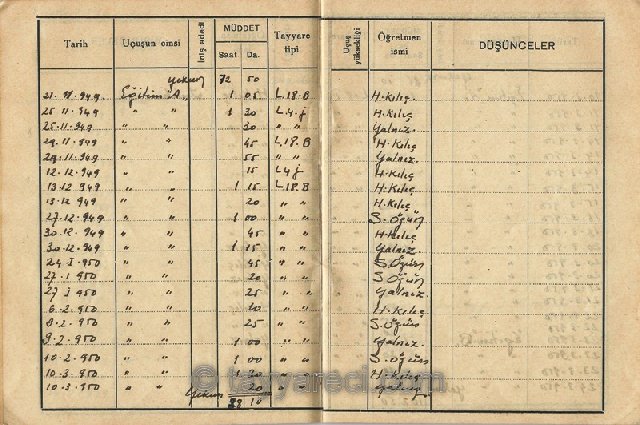 Tarih Uçuşun cinsi İniş adedi MÜDDET Tayyare tipi Uçuş yüksekliği Öğretmen ismi DÜŞÜNCELER
Saat Da.
Yekun 72 50
21.11.949 Eğitim A. 1 05 L.18.B H.Kılıç
25.11.949 " " 1 20 L.4.J H.Kılıç
25.11.949 " " 30 " " Yalnız.
29.11.949 " " 45 L.18.B H.Kılıç
29.11.949 " " 55 " " Yalnız.
12.12.949 " " 15 L4J H.Kılıç
13.12.949 " " 1 15 L.18.B H.Kılıç
13.12.949 " " 20 " " H.Kılıç
27.12.949 " " 1 00 " " S.
30.12.949 " " 45 " " H.Kılıç
30.12.949 " " 1 15 " " Yalnız.
950 " " 45 " " S.
27.1.950 " " 20 " " S.
950 " " 25 " " Yalnız.
6.2.950 " " " " H.Kılıç
8.2.950 " " 25 " " S.
9.2.950 " " 1 00 " " Yalnız.
10.2.950 " " 1 00 " " S.
10.3.950 " " " " H.Kılıç
10.3.950 " " 20 " " Yalnız.
Yekun
© tayyareci.com